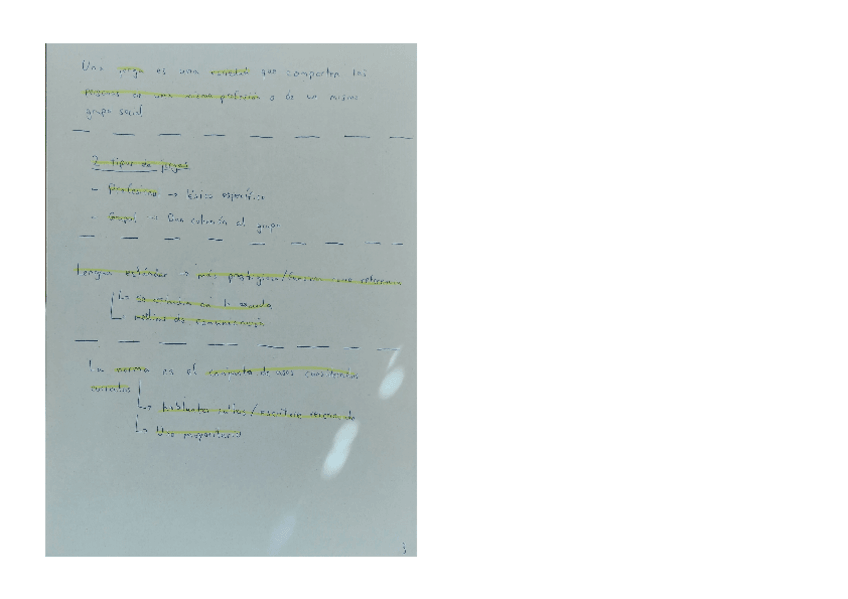 Una jerga es una variedad que comparten las
personas de una misma profesión o de un mismo
grupo social.
2 tipos de jergas
- Profesional → léxico específico
- Grupal → Dan cohesión al grupo
Lengua estándar → más prestigiosa/función como referencia
→ se enseña en la escuela
→ medios de comunicación
La norma es el conjunto de usos considerados
correctos
→ hablantes cultos/escritores
→ Uso